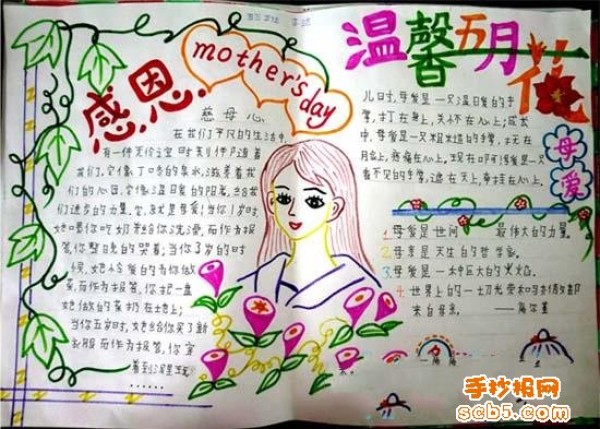 感恩
mother's day
慈母心
在我们平凡的生活中,
有一件无价之宝时刻伴随着
我们,它像丁冬的泉水,滋养着我
们的心田,它像温暖的阳光,给我
们进步的力量,它就是母爱!当你1岁时,
她喂你吃奶并给你洗澡,而作为报
答,你整晚的哭着;当你3岁的时
候,她怜爱的为你做
菜,而作为报答,你把一盘
她做的菜扔在地上;
当你五岁时,她给你买了新
衣服,而作为报答,你穿
着到泥里玩
......
温馨五月花
儿时,母爱是一只温暖的手
掌,打在身上,
中,母爱是一只粗糙的手掌,
看不见的手掌,远在天上,牵挂在心上。
母爱
1.母爱是世间最伟大的力量。
2.母亲是天生的哲学家。
3.母爱是一种巨大的火焰。
4.世界上的一切光荣和骄傲都
来自母亲。——高尔基
手抄报网
scb5.com